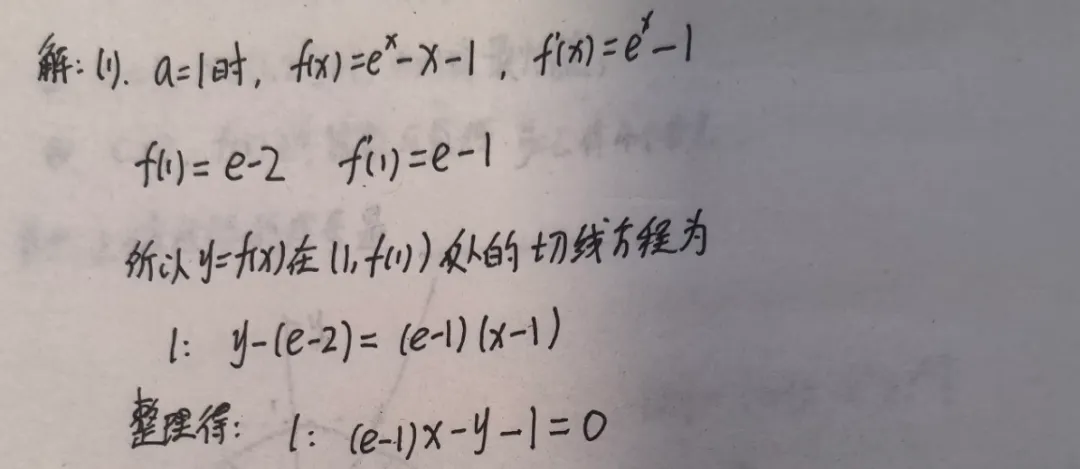 解：(1). a=1时, f(x)=e^x-x-1, f'(x)=e^x-1
f(1)=e-2 f'(1)=e-1
所以y=f(x)在(1,f(1))处的切线方程为
l: y-(e-2)=(e-1)(x-1)
整理得: l: (e-1)x-y-1=0